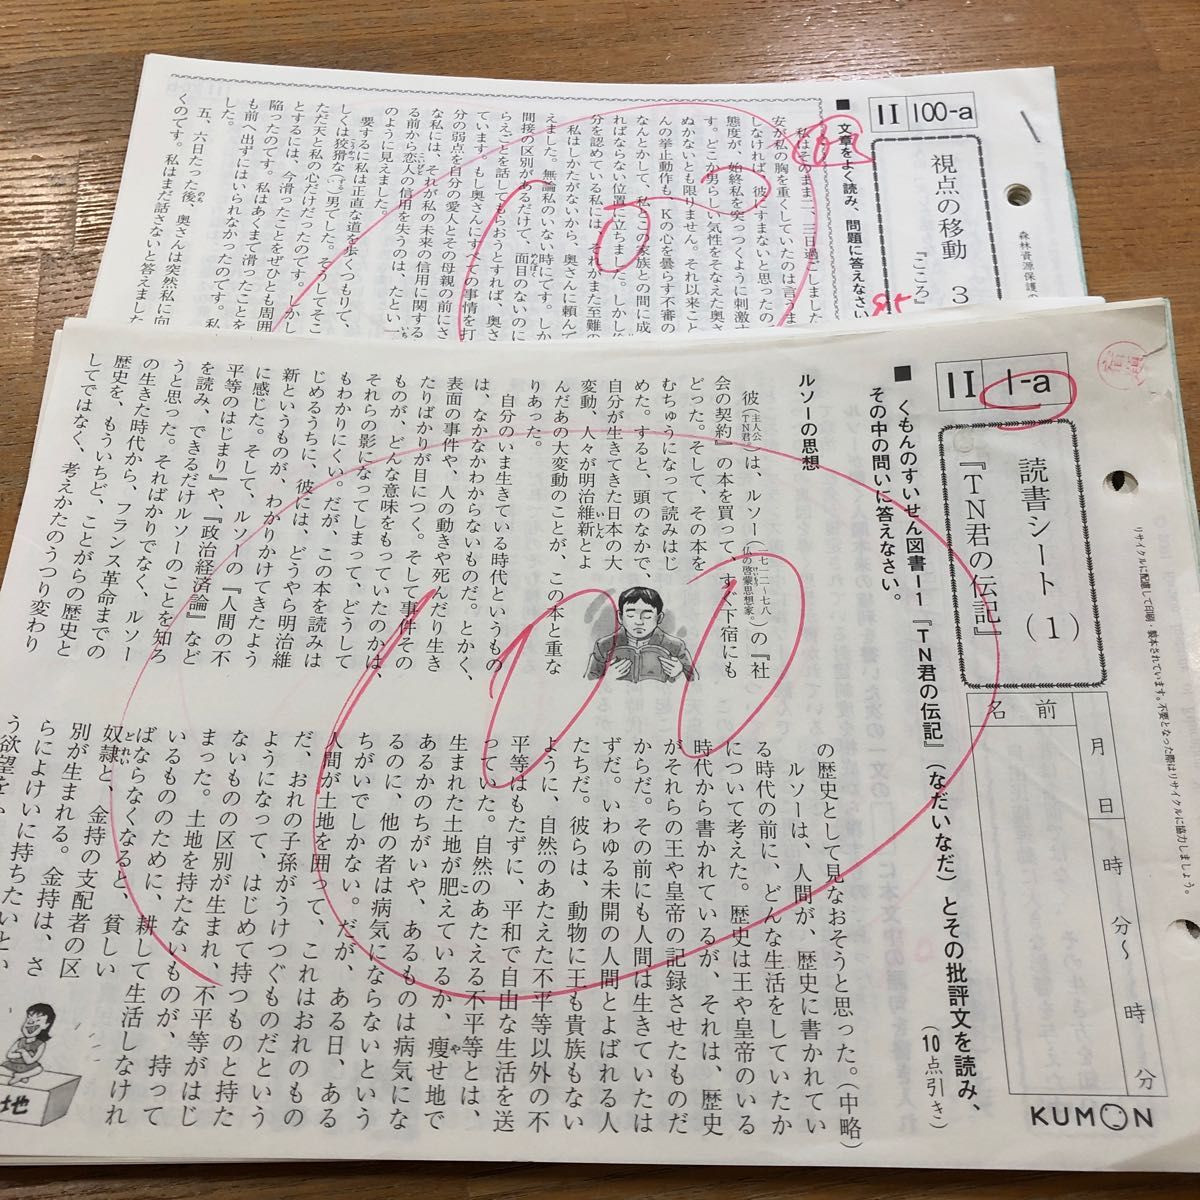 II 100-a
視点の移動 3
『こころ』
■ 文章をよく読み、問題に答えなさい
私はそのまま二、三日過ごしました
安が私の胸を重くしていたのは言うま
しなければ、彼にすまないと思ったの
態度が、始終私を突っつくように刺激す
す。どこか男らしい気性をそなえた奥さ
ぬかないとも限りません。それ以来こと
んの挙止動作も、Kの心を曇らす不審の
なんとかして、私とこの家族との間に成
ればならない位置に立ちました。しかし
分を認めている私には、それがまた至難の
私はしかたがないから、奥さんに頼んで
えました。無論私のいない時にです。しか
間接の区別があるだけで、面目のないのに
らえごとを話してもらおうとすれば、奥さ
ています。もし奥さんにすべての事情を打
分の弱点を自分の愛人とその母親の前にさ
な私には、それが私の未来の信用に関する
る前から恋人の信用を失うのは、たとい一
のように見えました。
要するに私は正直な道を歩くつもりで、
しくは狡猾な男でした。そうしてそこ
ただ天と私の心だけだったのです。しかし
とするには、今滑ったことをぜひとも周囲
陥ったのです。私はあくまで滑ったことを
も前へ出ずにはいられなかったのです。
した。
五、六日たった後、奥さんは突然私に向
くのです。私はまだ話さないと答えました
100
森林資源保護の
II 1-a
読書シート(1)
『TN君の伝記』
名前
月 日 時 分〜 時 分
KUMON
リサイクルに配慮して印刷・製本されています。不要となった際はリサイクルに協力しましょう。
■ くもんのすいせん図書I-1『TN君の伝記』(なだいなだ)とその批評文を読み、
その中の問いに答えなさい。
(10点引き)
ルソーの思想
彼(主人公TN君。)は、ルソー(一七一二〜七八 仏の啓蒙思想家。)の『社
会の契約』の本を買って、すぐ下宿にも
どった。そして、その本を
むちゅうになって読みはじ
めた。すると、頭のなかで、
自分が生きてきた日本の大
変動、人々が明治維新とよ
んだあの大変動のことが、この本と重な
りあった。
自分のいま生きている時代というもの
は、なかなかわからないものだ。とかく、
表面の事件や、人の動きや死んだり生き
たりばかりが目につく。そして事件その
ものが、どんな意味をもっていたのかは、
それらの影になってしまって、どうして
もわかりにくい。だが、この本を読みは
じめるうちに、彼には、どうやら明治維
新というものが、わかりかけてきたよう
に感じた。そして、ルソーの『人間の不
平等のはじまり』や、『政治経済論』など
を読み、できるだけルソーのことを知ろ
うと思った。そればかりでなく、ルソー
の生きた時代から、フランス革命までの
歴史を、もういちど、ことがらの歴史と
してではなく、考えかたのうつり変わり
の歴史として見なおそうと思った。(中略)
ルソーは、人間が、歴史に書かれてい
る時代の前に、どんな生活をしていたか
について考えた。歴史は王や皇帝のいる
時代から書かれているが、それは、歴史
がそれらの王や皇帝の記録させたものだ
からだ。その前にも人間は生きていたは
ずだ。いわゆる未開の人間とよばれる人
たちだ。彼らは、動物に王も貴族もない
ように、自然のあたえた不平等以外の不
平等はもたずに、平和で自由な生活を送
っていた。自然のあたえる不平等とは、
生まれた土地が肥えているか、痩せ地で
あるかのちがいや、あるものは病気にな
るのに、他の者は病気にならないという
ちがいでしかない。だが、ある日、ある
人間が土地を囲って、これはおれのもの
だ、おれの子孫がうけつぐものだという
ようになって、はじめて持つものと持た
ないものの区別が生まれ、不平等がはじ
まった。土地を持たないものが、持って
いるもののために、耕して生活しなけれ
ばならなくなると、貧しい
奴隷と、金持の支配者の区
別が生まれる。金持は、さ
らによけいに持ちたいとい
う欲望を
地
100